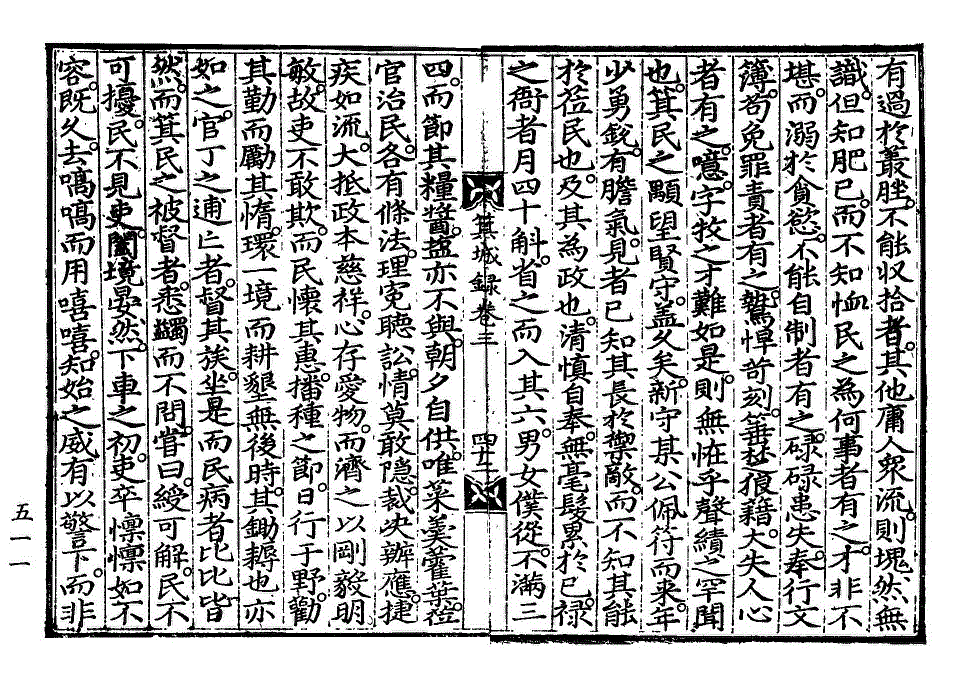 有過於叢脞。不能收拾者。其他庸人衆流。則塊然無
識。但知肥己。而不知恤民之為何事者有之。才非不
堪。而溺於貪慾。不能自制者有之。碌碌患失。奉行文
簿。苟免罪責者有之。鷙悍苛刻。箠楚狼籍。大失人心
者有之。噫。字牧之才難如是。則無恠乎聲績之罕聞
也。箕民之顒望賢守。盖久矣。新守某公佩符而来。年
少勇銳。有膽氣。見者已知其長於禦敵。而不知其能
於莅民也。及其為政也。清慎自奉。無毫髮累於己。祿
之衙者月四十斛。省之而入其六。男女僕從。不滿三
箕城錄卷三
四十二
四。而節其糧。醬塩亦不與。朝夕自供。唯菜羹藿葉。莅
官治民。各有條法。理寃聽訟。情莫敢隱。裁决辦應。捷
疾如流。大抵政本慈祥。心存愛物。而濟之以剛毅明
敏。故吏不敢欺。而民懷其惠。播種之節。日行于野。勸
其勤而勵其惰。環一境而耕墾無後時。其鋤耨也亦
如之。官丁之逋亡者。督其族。坐是而民病者比比皆
然。而箕民之被督者。悉蠲而不問。嘗曰。綬可解。民不
可擾。民不見吏。闔境晏然。下車之初。吏卒懍懍如不
容。既久。去嗃嗃而用嘻嘻。知始之威有以警下。而非
五一一